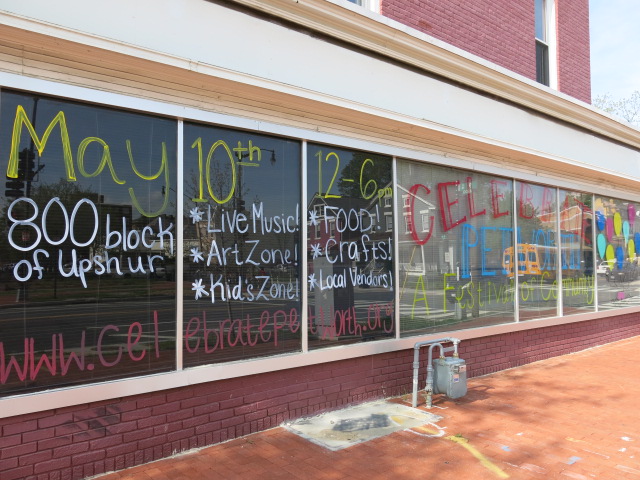 May 10th 12-6pm
800 block of Upshur
*Live Music!
*Art Zone!
*Kid's Zone!
*FOOD!
*Crafts!
*Local Vendors!
www.celebratepetworth.org
CELEBRATE
PETWORTH
A Festival of Community